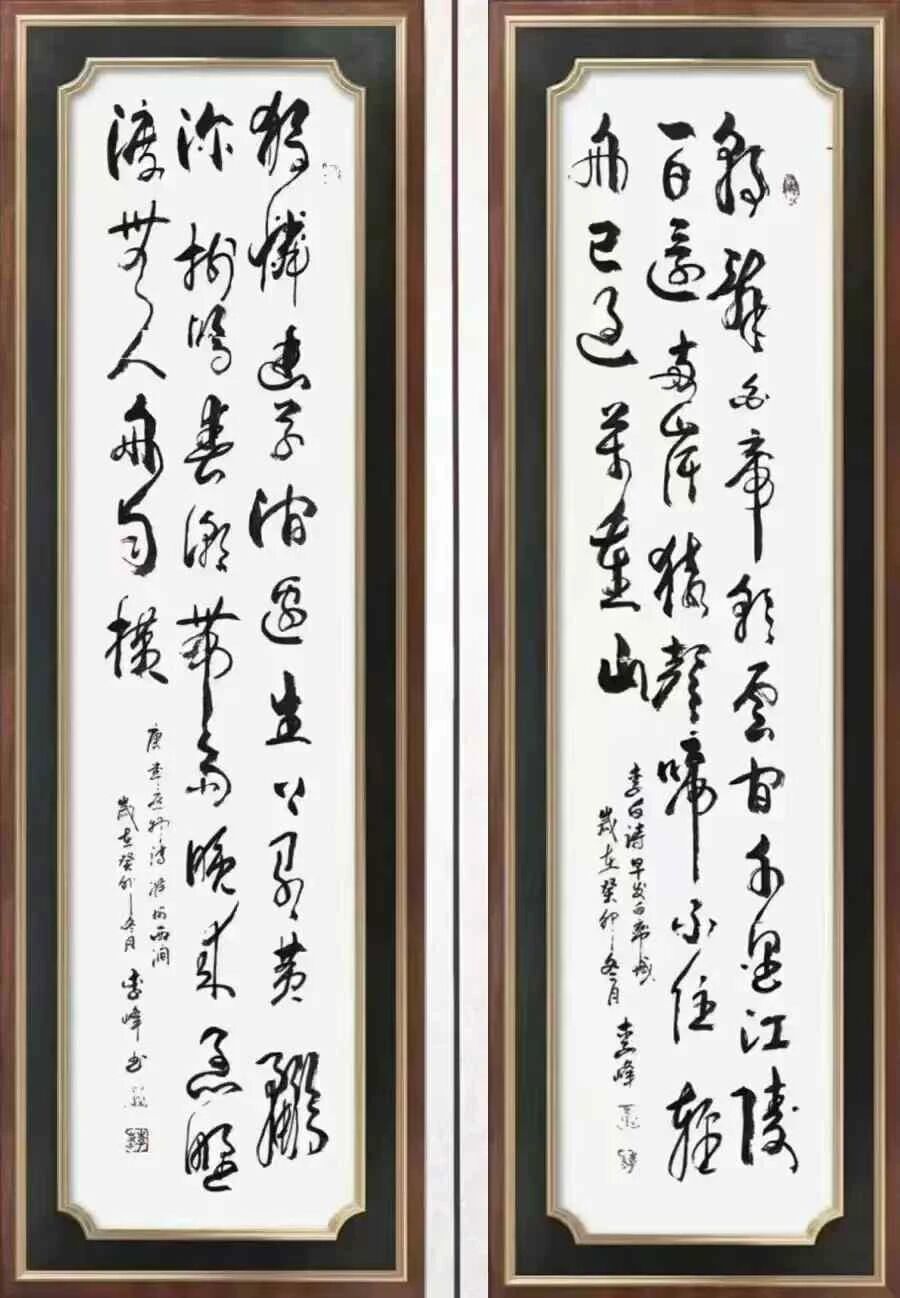 朝辭白帝彩雲間千里江陵
一日還兩岸猿聲啼不住輕
舟已過萬重山
李白诗早发白帝城
歲在癸卯冬月 李峰
獨憐幽草澗邊生上有黃鸝
深樹鳴春潮帶雨晚來急野
渡無人舟自橫
唐韋應物诗滁州西澗
歲在癸卯冬月 李峰书